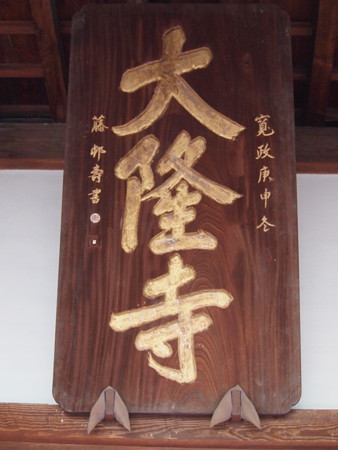 寛政庚申冬
大隆寺
藤邨壽書